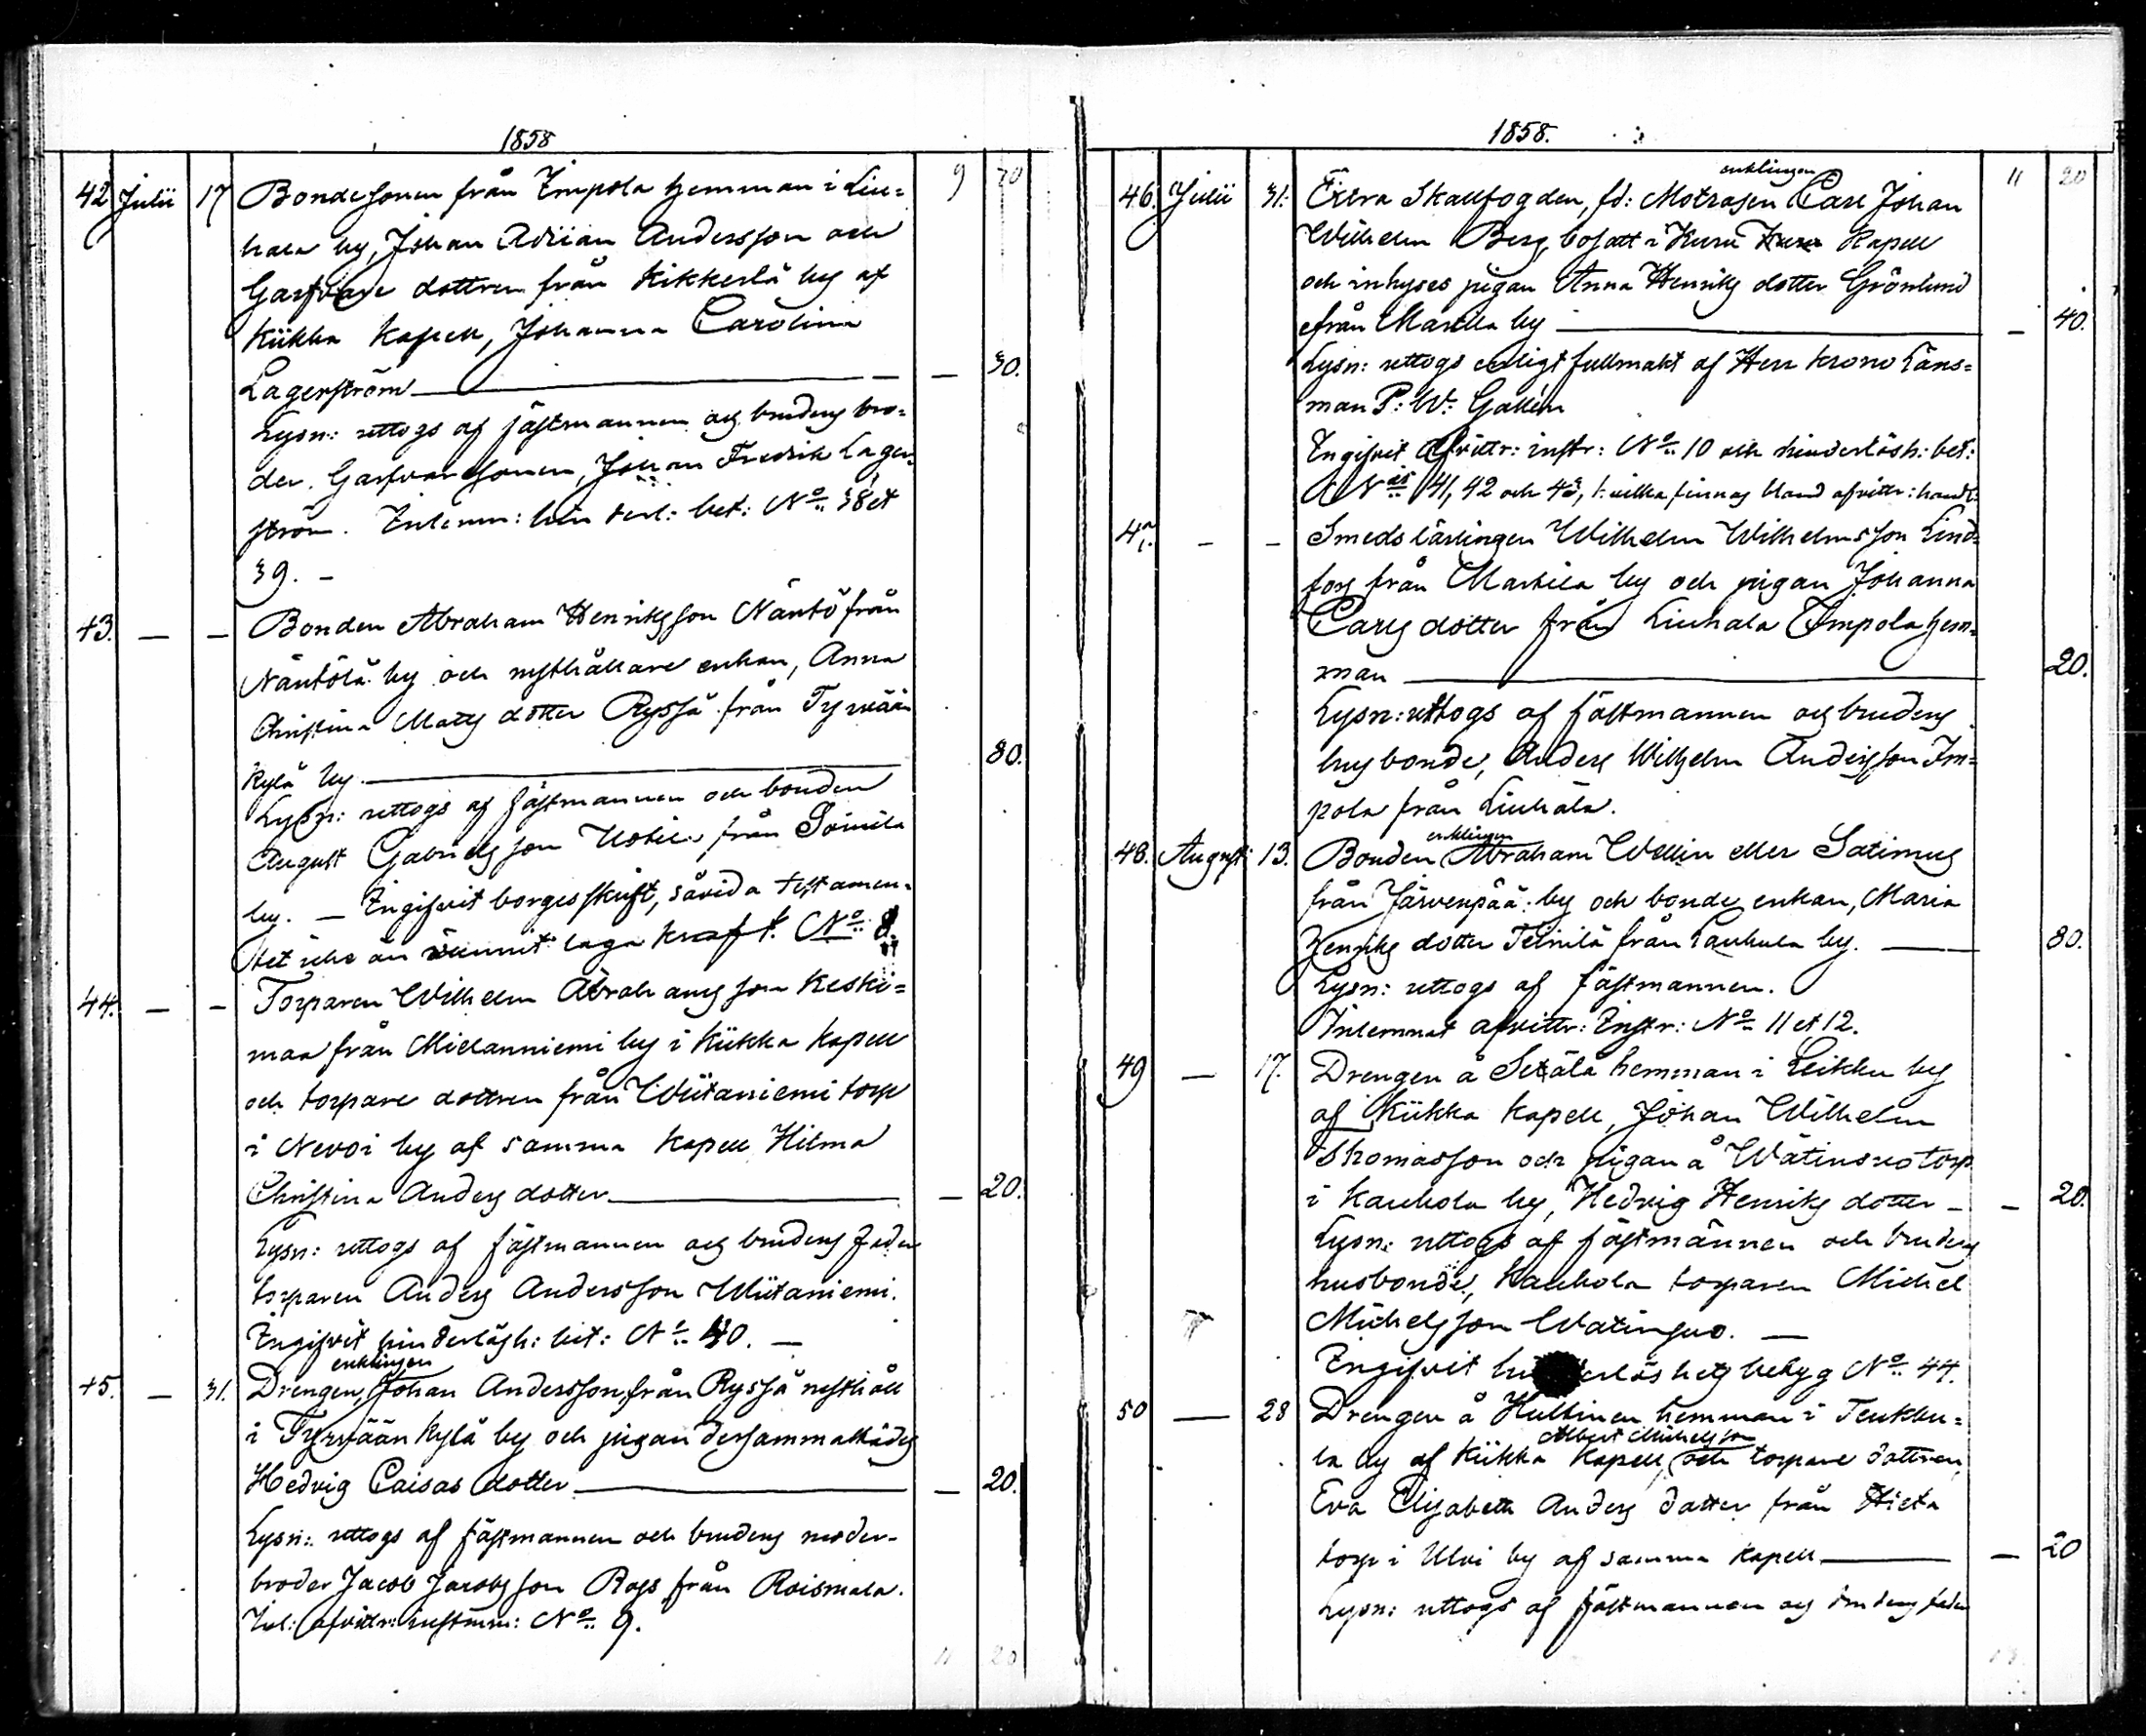 1858
9 70
42 Julii 17 Bondesonen från Impola hemman i Liu=
hala by, Johan Adrian Andersson och
Garfvare dottren från Kikkerlä by af
Kiikka Kapell, Johanna Carolina
Lagerström — — 30.
Lysn: uttogs af fästmannen och brudens bro=
der, Garfvaresonen, Johan Fredrik Lager=
ström. Inlemn: hinderl: bet: No 38 et
39. –
43. — — Bonden Abraham Henriksson Näntö från
Näntölä by och rusthållare enkan, Anna
Christina Mats dotter Ryssä från Tyrvään
Kylä by. — 80.
Lysn: uttogs af fästmannen och bonden
August Gabrielsson från Soinila
by. — Ingifvit borgesskrift, såvida testamen=
tet icke än vunnit laga kraft. No 8.
44. — — Torparen Wilhelm Abrahamsson Keski=
maa från Mielanniemi by i Kiikka Kapell
och torpare dottren från Wiitaniemi torp
i Nevoi by af samma Kapell Hilma
Christina Anders dotter — — 20.
Lysn: uttogs af fästmannen och brudens fader
torparen Anders Andersson Wiitaniemi.
Ingifvit hinderlösh: bet: No 40. —
enklingen
45. — 31. Drengen, Johan Andersson, från Ryssä rusthåll
i Tyrvään Kylä by och pigan dersammastädes
Hedvig Caisas dotter — — 20.
Lysn: uttogs af fästmannen och brudens moder-
broder Jacob Jacobsson Rags från Roismala.
Inl: afvittr: instrum: No 9.
11 20
1858.
enklingen
11 20
46. Julii 31. Extra Skallfogden, fd: Carl Johan
Wilhelm Berg, bosatt i Kuru Kuru Kapell
och inhyses pigan Anna Henriks dotter Grönlund
från Martila by — — 40.
Lysn: uttogs enligt fullmakt af Herr Krono Läns=
man P: W: Gallén
Ingifvit afvittr: instr: No 10 och hinderlösh: bet:
Nris 41, 42 och 43, hvilka finnas bland afvittr: handl:
47. – – Smedslärlingen Wilhelm Wilhelmsson Lind=
fors från Martila by och pigan Johanna
Carls dotter från Liuhala Impola hem=
man — 20.
Lysn: uttogs af fästmannen och brudens
husbonde, Anders Wilhelm Andersson Im=
pola från Liuhala.
enklingen
48. Augusti 13. Bonden Abraham Wellin eller Satimus
från Järvenpää by och bonde enkan, Maria
Henriks dotter Teinilä från Kauhula by. — 80.
Lysn: uttogs af fästmannen.
Inlemnat afvittr: Instr: No 11 et 12.
49 — 17. Drengen å Setälä hemman i Leikku by
af Kiikka Kapell, Johan Wilhelm
Thomasson och pigan å torp
i Kauhola by, Hedvig Henriks dotter – – 20.
Lysn: uttogs af fästmannen och brudens
husbonde, Kauhola torparen Michel
Michelsson
Ingifvit hinderlöshets betyg No 44.
50 — 28 Drengen å Hultinen hemman i Teukku=
Albert Michelsson
la by af Kiikka Kapell, och torpare dottren
Eva Elisabeth Anders dotter från Hieta
torp i Ulvi by af samma Kapell — — 20
Lysn: uttogs af fästmannen och brudens fader